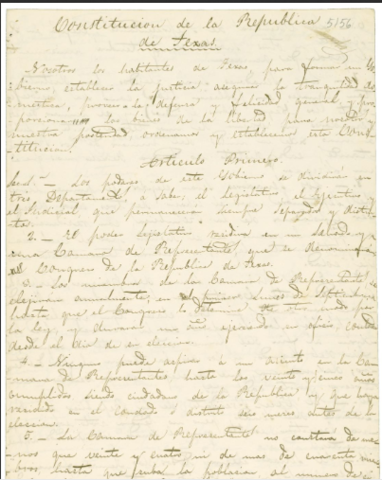 Constitucion de la Republica 5156
de Texas.
Nosotros los habitantes de Texas para formar un
bierno, establecer la justicia asegurar la tranquilidad do
mestica, proveer la defensa y felicidad general, y pro
porcionarnos los bienes de la libertad para nosotros y
nuestra posteridad ordenamos y establecemos esta Cons-
titucion.
Articulo Primero.
Los poderes de este Gobierno se dividiran en
tres Departamentos a saber; el legislativo el Ejecutivo y
el Judicial, que permaneceran siempre separados y distin
tos.
2. - El poder Legislativo residira en un Senado y
una Camara de Representantes que se denominara
el Congreso de la Republica de Texas.
3. - Los miembros de la Camara de Representantes se
elejiran anualmente, en el primer Lunes de Septiembre
hasta que el Congreso lo determine de otro modo por
la ley, y duraran un año ejerciendo su oficio,
desde el dia de su eleccion.
4. - Ninguno puede aspirar a un asiento en la Ca
mara de Representantes hasta los veinte y cinco años
cumplidos siendo ciudadano de la Republica y que haya
residido en el condado o distrito seis meses antes de la
eleccion.
5. - La Camara de Representantes no constara de me
nos que veinte y cuatro ni de mas de cuarenta miem
bros hasta que suba la poblacion al numero de